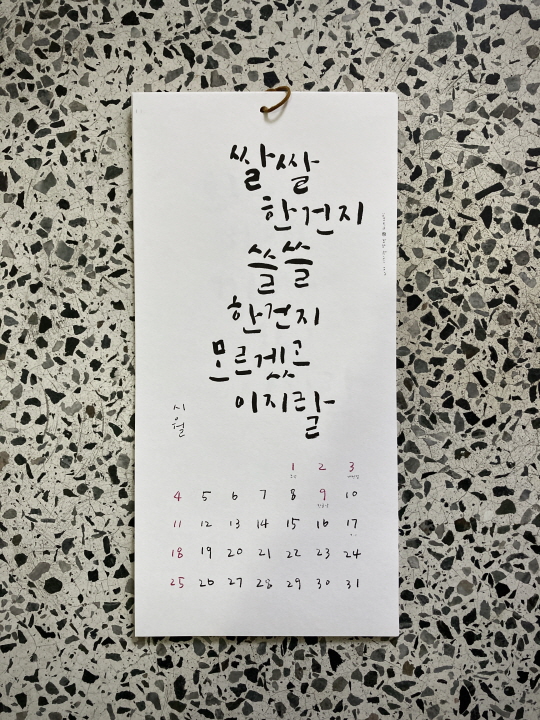 쌀쌀
한건지
쓸쓸
한건지
모르겠고
이지랄
시월
1 2 3
4 5 6 7 8 9 10
11 12 13 14 15 16 17
18 19 20 21 22 23 24
25 26 27 28 29 30 31